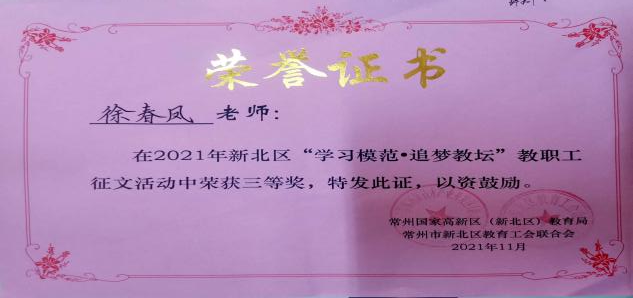 荣誉证书
徐春凤 老师：
在2021年新北区“学习模范•追梦教坛”教职工
征文活动中荣获三等奖，特发此证，以资鼓励。
常州国家高新区（新北区）教育局
常州市新北区教育工会联合会
2021年11月